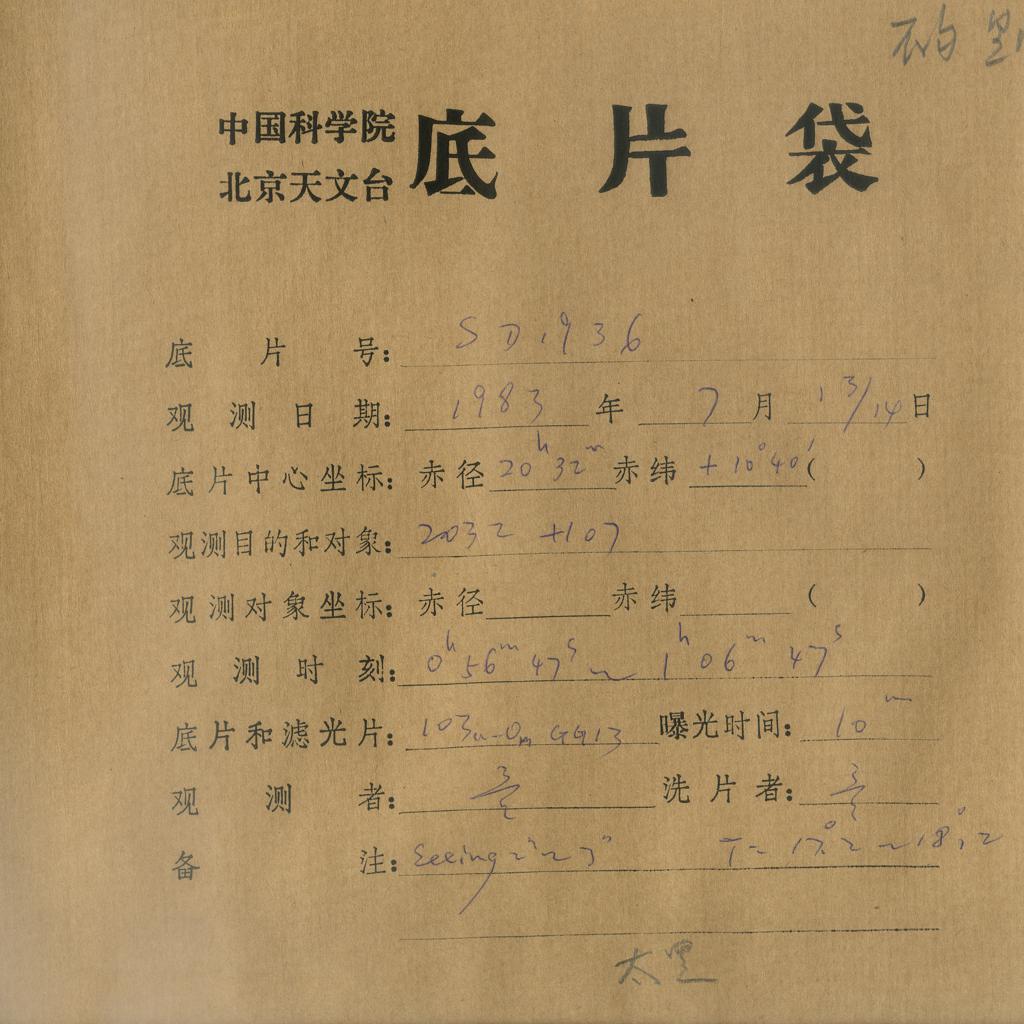 中国科学院
北京天文台
底片袋
底片号: SD1936
观测日期: 1983年 7月 13/14日
底片中心坐标: 赤径 20h32m 赤纬 +10°40′( )
观测目的和对象: 2032 +107
观测对象坐标: 赤径 赤纬 ( )
观测时刻: 0h56m47s ~ 1h06m47s
底片和滤光片: 103a-O GG13 曝光时间: 10m
观测者: 洗片者:
备注: Seeing 2"~3" T= 17°.2 ~ 18°.2
太黑